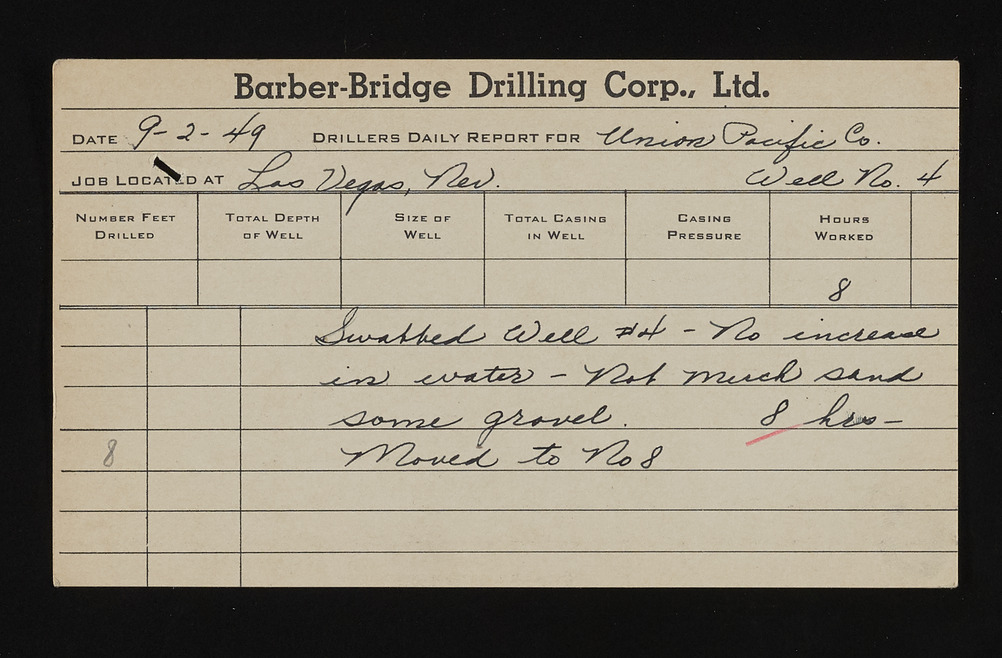 Barber-Bridge Drilling Corp., Ltd.
DATE 9-2-49 DRILLERS DAILY REPORT FOR Union Pacific Co.
JOB LOCATED AT Las Vegas, Nev. Well No. 4
NUMBER FEET DRILLED TOTAL DEPTH OF WELL SIZE OF WELL TOTAL CASING IN WELL CASING PRESSURE HOURS WORKED
8
Swabbed Well #4 - No increase
in water - Not much sand
some gravel. 8 hrs-
8 Moved to No 8